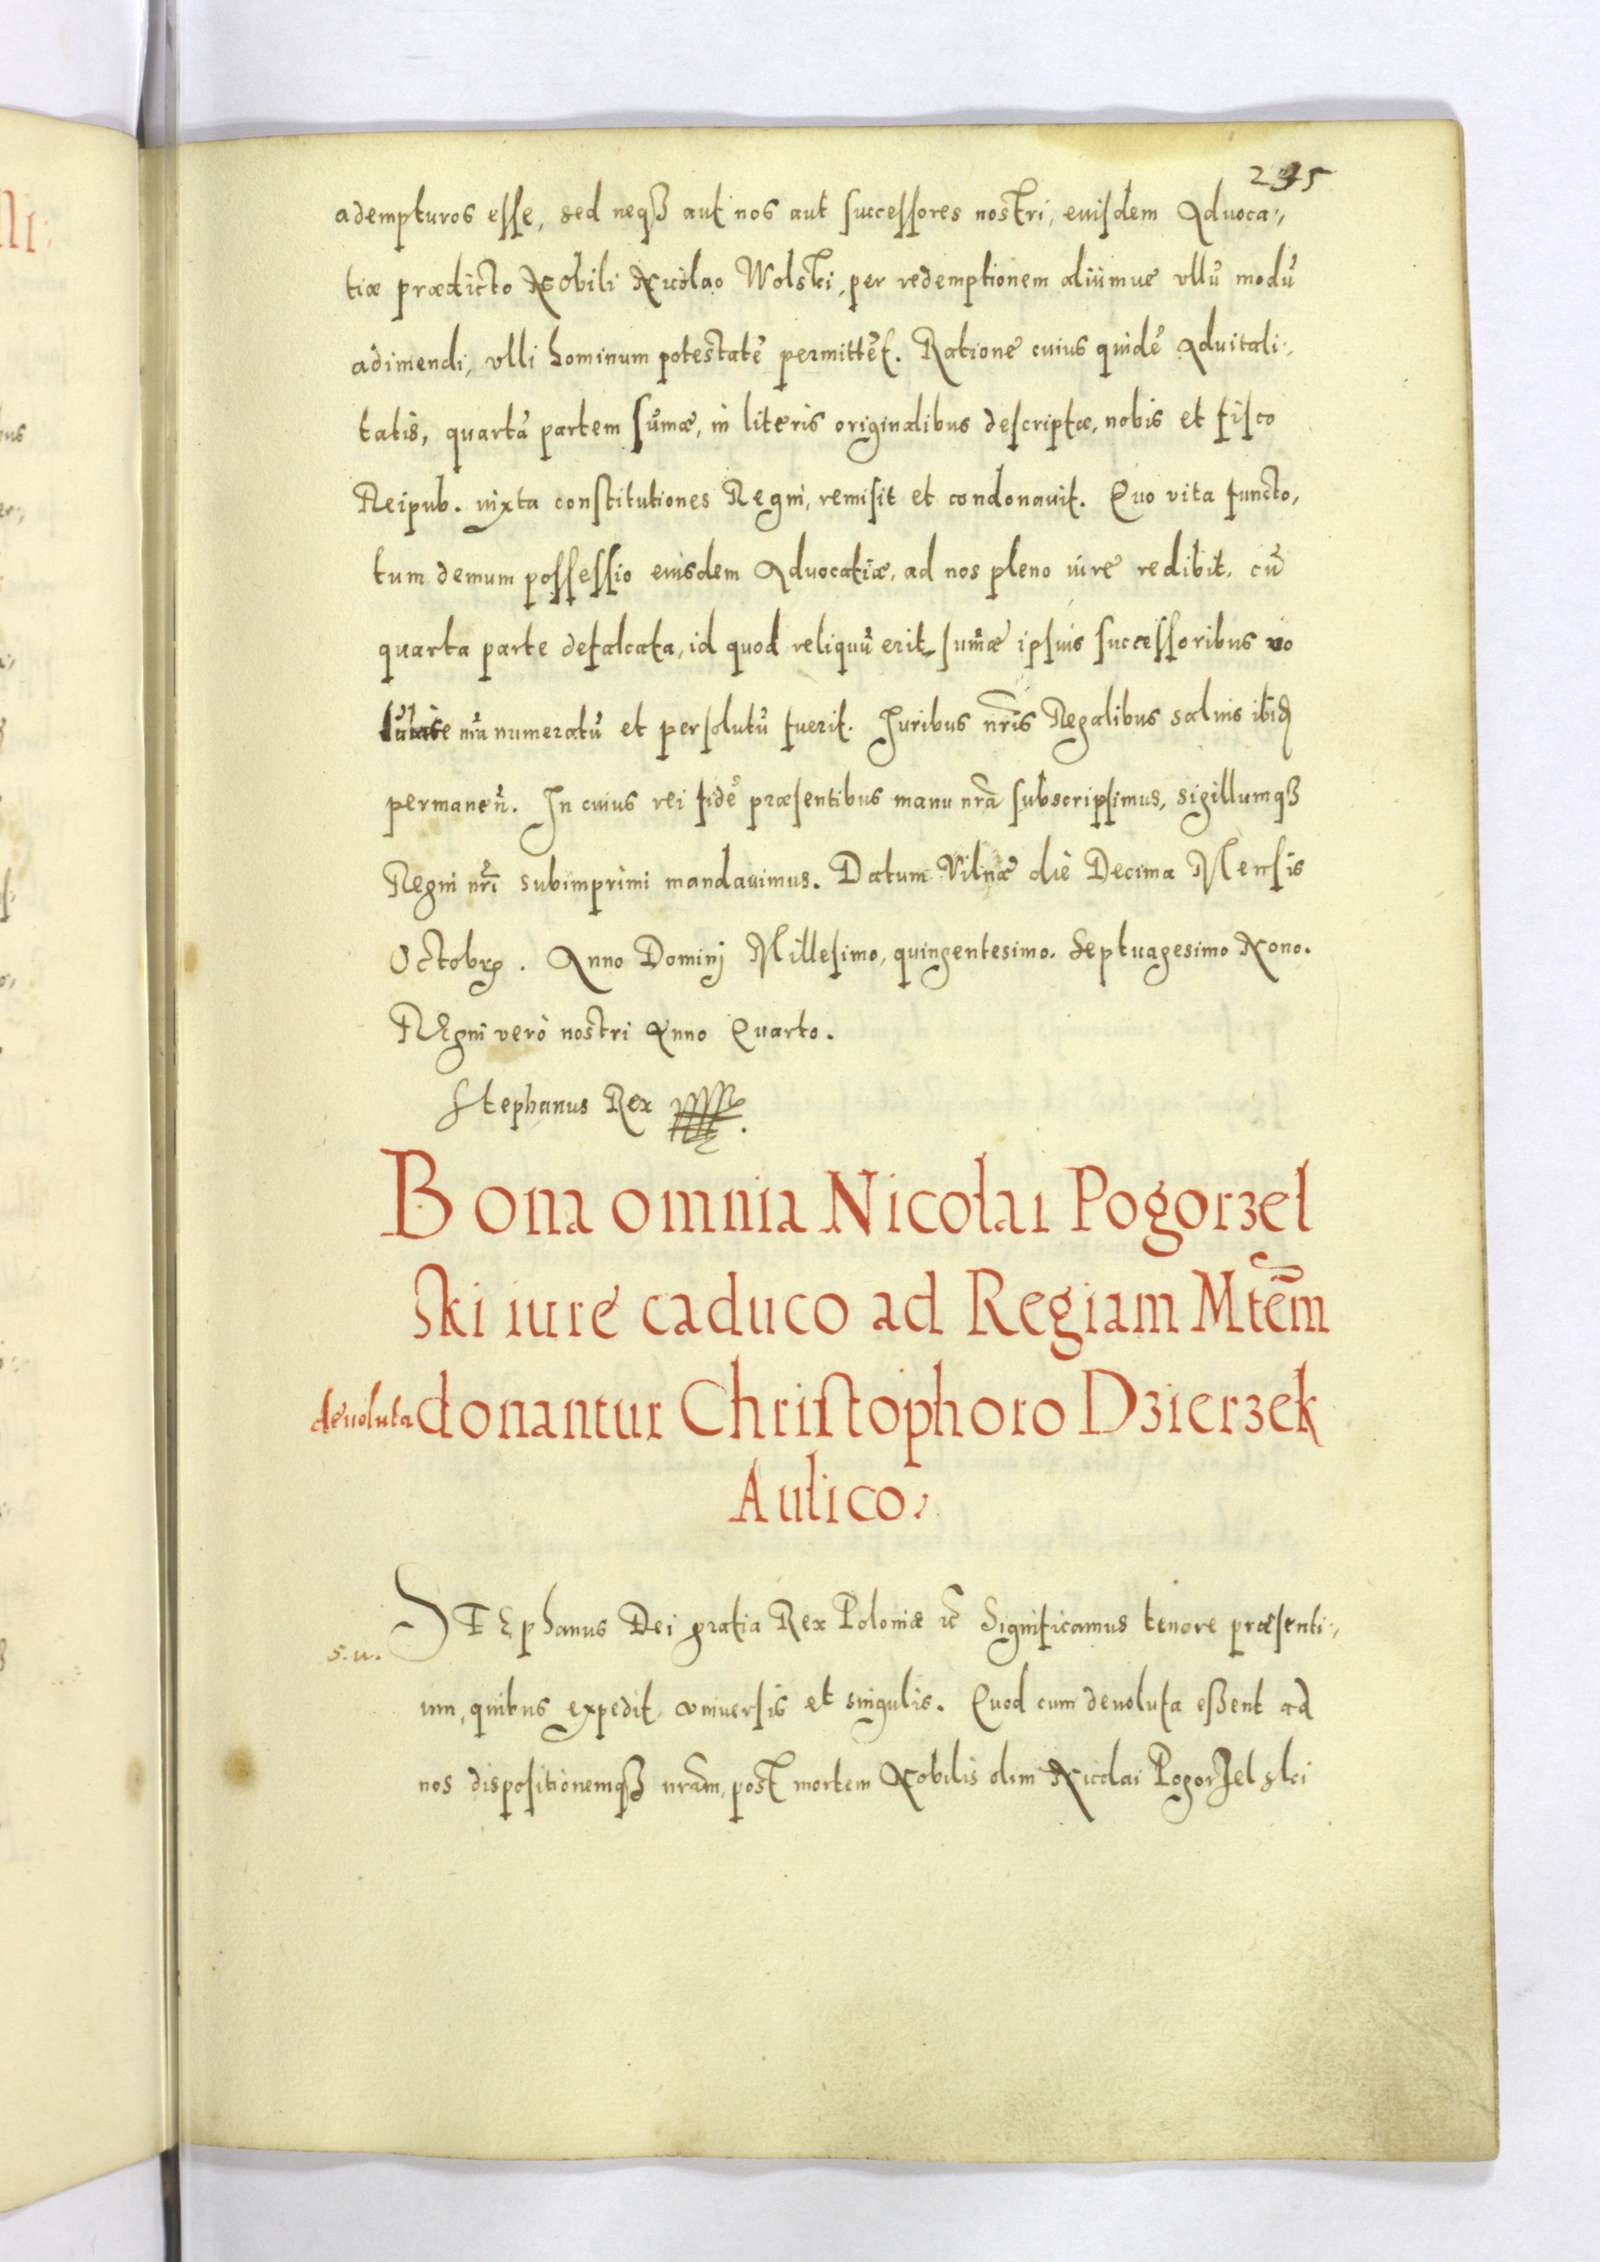 235
adempturos esse, sed neqȝ aut nos aut successores nostri, euisdem Aduoca-
tiæ prædicto Nobili Nicolao Wolski, per redemptionem aliumue vllũ modũ
adimendi, vlli hominum potestatẽ permittẽt. Ratione cuius quidẽ Aduitali-
tatis, quartã partem sũmæ, in literis originalibus descriptæ, nobis et fisco
Reipub. iuxta constitutiones Regni, remisit et condonauit. Quo vita functo,
tum demum possessio euisdem Aduocatiæ, ad nos pleno iure redibit, cũ
quarta parte defalcata, id quod reliquũ erit sum̃æ ipsius successoribus
numeratũ et persolutũ fuerit. Juribus nr̃is Regalibus saluis ibid
permaneñ. In cuius rei fidẽ præsentibus manu nr̃a subscripsimus, sigillumqȝ
Regni nr̃i subimprimi mandauimus. Datum Vilnæ die Decima Mensis
Octobr. Anno Dominj Millesimo, quingentesimo. Septuagesimo Nono.
REgni verò nostri Anno Quarto.
Stephanus Rex
Bona omnia Nicolai Pogorzel
ski iure caduco ad Regiam Mtẽm
devoluta donantur Christophoro Dzierzek
Aulico.
STEphanus Dei gratia Rex Poloniæ Significamus tenore præsenti-
s.u.
um, quibus expedit vniuersis et singulis. Quod cum deuoluta eßent ad
nos dispositionemqȝ nr̃am, post mortem Nobilis olim Nicolai Pogorzelski